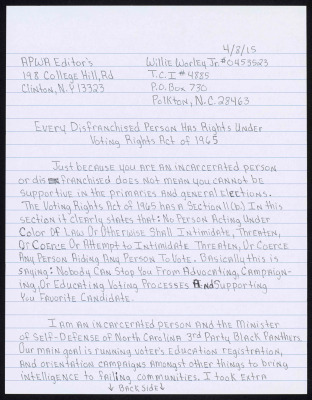 4/8/15
APWA Editor's Willie Worley Jr. #0453523
198 College Hill, Rd T.C.I #4885
Clinton, N.Y 13323 P.O. Box 730
Polkton, N.C. 28463
Every Disfranchised Person Has Rights Under
Voting Rights Act of 1965
Just because you are an incarcerated person
or disfranchised does not mean you cannot be
supportive in the primaries and general elections.
The Voting Rights Act of 1965 has a Section 11(b.) In this
section it clearly states that: No Person Acting Under
Color Of Law Or Otherwise Shall Intimidate, Threaten,
Or Coerce Or Attempt to Intimidate Threaten, Or Coerce
Any Person Aiding Any Person To Vote. Basically this is
saying: Nobody Can Stop You From Advocating, Campaign-
ing, Or Educating Voting Processes And Supporting
You Favorite Candidate.
I am an incarcerated person and the Minister
of Self-Defense of North Carolina 3rd Party Black Panthers.
Our main goal is running voter's Education registration,
and orientation campaigns amongst other things to bring
intelligence to failing communities. I took extra
↓ Backside ↓